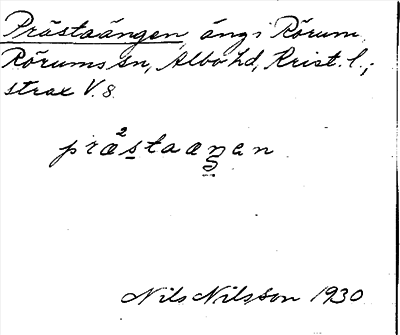 Prästaängen, äng i Rörum,
Rörums sn, Albo hd, Krist. l.;
strax V. 8.
præ²staaŋan
Nils Nilsson 1930